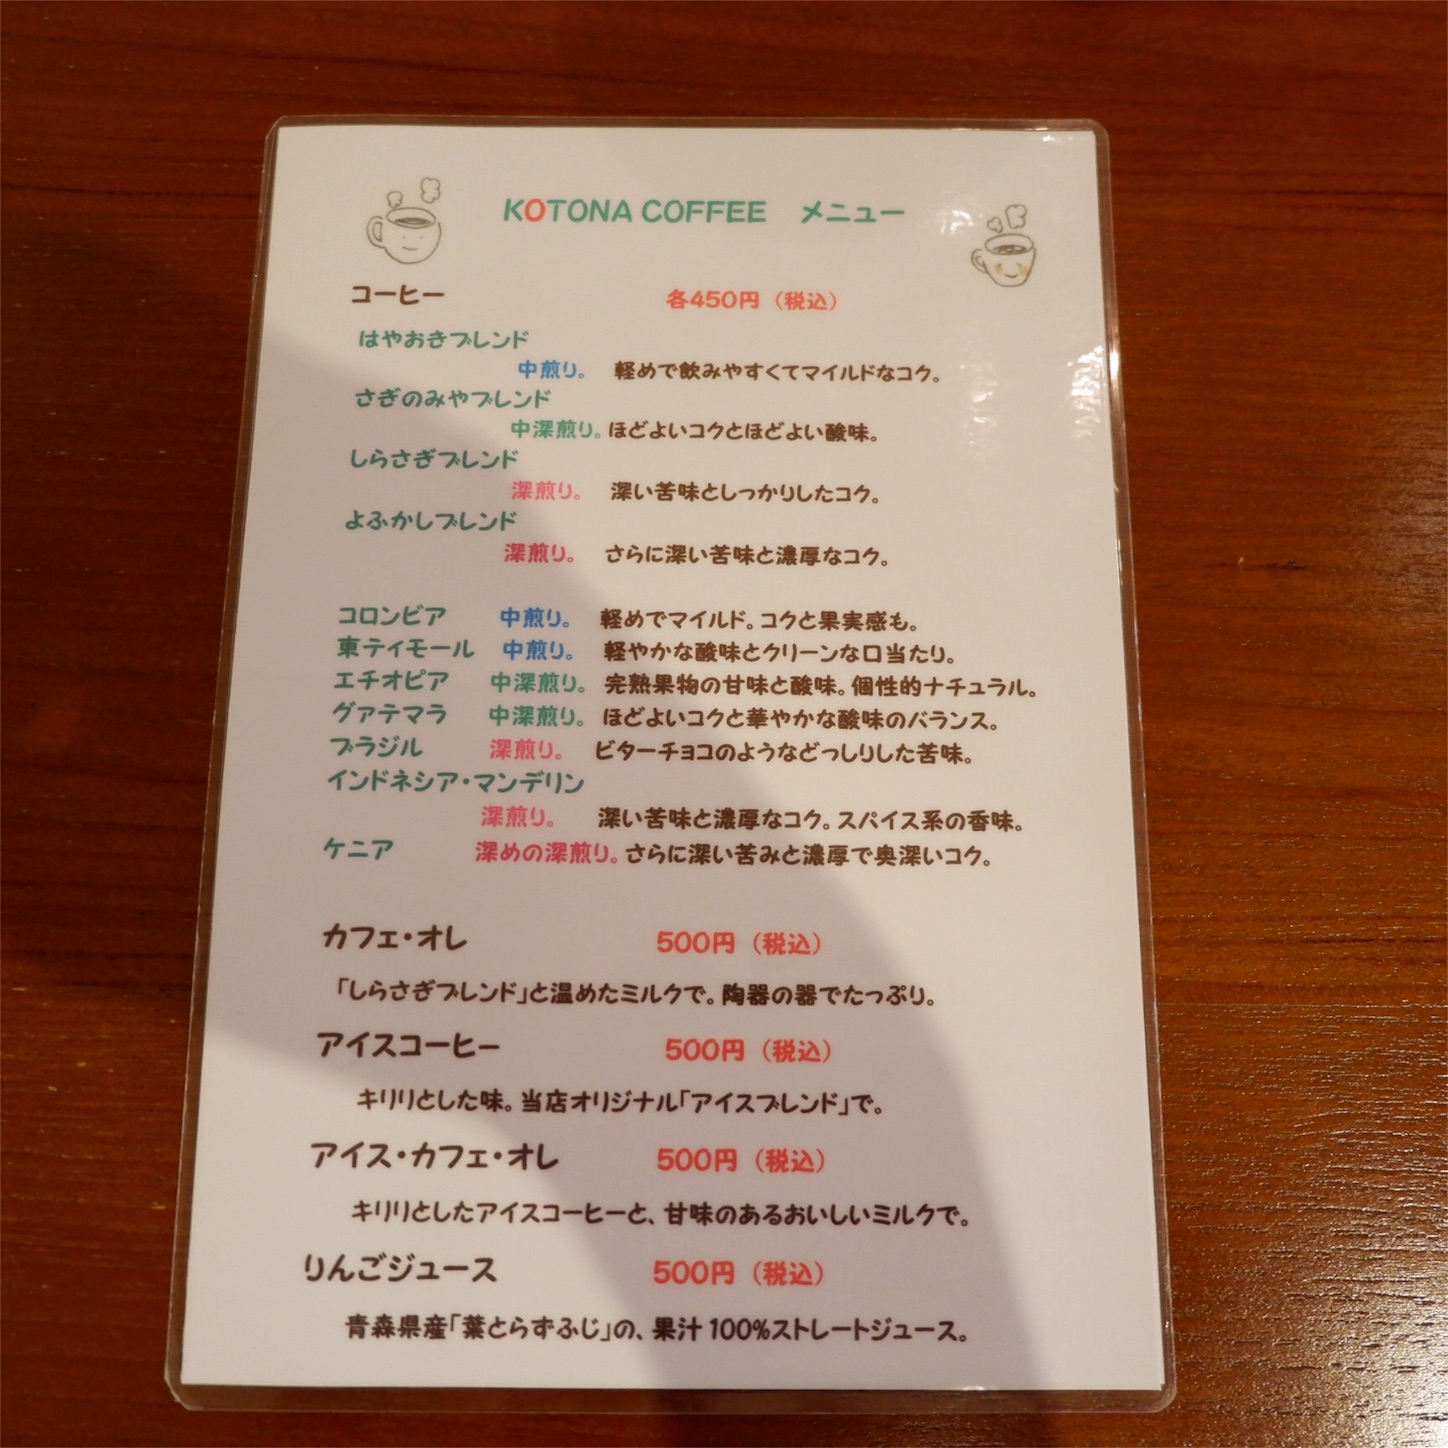 KOTONA COFFEE メニュー
コーヒー 各450円（税込）
はやおきブレンド
中煎り。 軽めで飲みやすくてマイルドなコク。
さぎのみやブレンド
中深煎り。ほどよいコクとほどよい酸味。
しらさぎブレンド
深煎り。 深い苦味としっかりしたコク。
よふかしブレンド
深煎り。 さらに深い苦味と濃厚なコク。
コロンビア 中煎り。 軽めでマイルド。コクと果実感も。
東ティモール 中煎り。 軽やかな酸味とクリーンな口当たり。
エチオピア 中深煎り。 完熟果物の甘味と酸味。個性的ナチュラル。
グァテマラ 中深煎り。 ほどよいコクと華やかな酸味のバランス。
ブラジル 深煎り。 ビターチョコのようなどっしりした苦味。
インドネシア・マンデリン
深煎り。 深い苦味と濃厚なコク。スパイス系の香味。
ケニア 深めの深煎り。さらに深い苦みと濃厚で奥深いコク。
カフェ・オレ 500円（税込）
「しらさぎブレンド」と温めたミルクで。陶器の器でたっぷり。
アイスコーヒー 500円（税込）
キリリとした味。当店オリジナル「アイスブレンド」で。
アイス・カフェ・オレ 500円（税込）
キリリとしたアイスコーヒーと、甘味のあるおいしいミルクで。
りんごジュース 500円（税込）
青森県産「葉とらずふじ」の、果汁100%ストレートジュース。